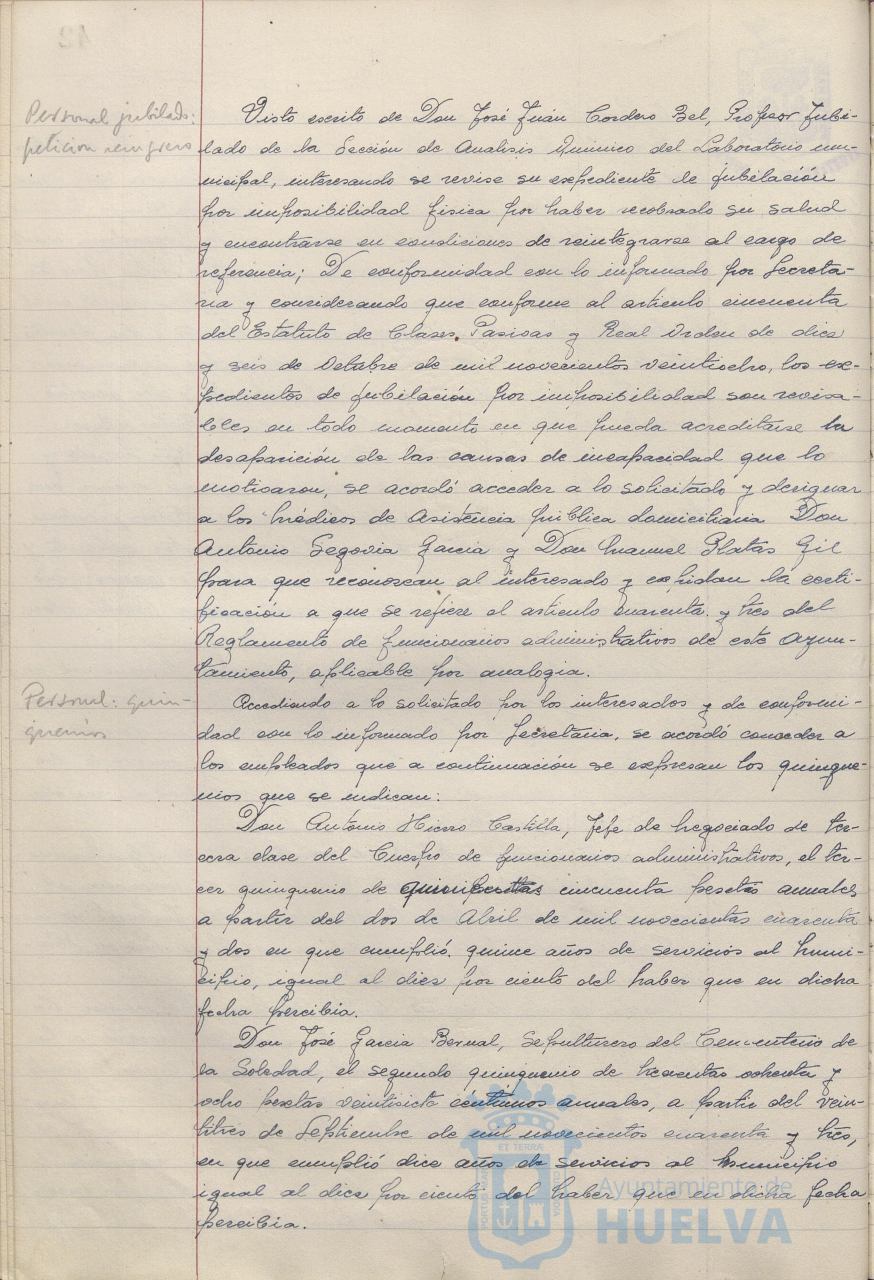 Personal jubilado:
petición reingreso
Visto escrito de Don José Juán Cordero Bel, Profesor Jubi-
lado de la Sección de Analisis Químico del Laboratorio mu-
nicipal, interesando se revise su expediente de jubilación
por imposibilidad fisica por haber recobrado su salud
y encontrarse en condiciones de reintegrarse al cargo de
referencia; De conformidad con lo informado por Secreta-
ria y considerando que conforme al articulo cincuenta
del Estatuto de Clases Pasivas y Real Orden de diez
y seis de Octubre de mil novecientos veintiocho, los ex-
pedientes de jubilación por imposibilidad son revisa-
bles en todo momento en que pueda acreditarse la
desaparición de las causas de incapacidad que lo
motivaron, se acordó acceder a lo solicitado y designar
a los Médicos de Asistencia pública domiciliaria Don
Antonio Segovia Garcia y Don Manuel Platas Gil
para que reconozcan al interesado y expidan la certi-
ficación a que se refiere el articulo cuarenta y tres del
Reglamento de funcionarios administrativos de este Ayun-
tamiento, aplicable por analogia.
Personal: quin-
quenios
Accediendo a lo solicitado por los interesados y de conformi-
dad con lo informado por Secretaria, se acordó conceder a
los empleados que a continuación se expresan los quinque-
nios que se indican:
Don Antonio Hierro Castilla, Jefe de Negociado de ter-
cera clase del Cuerpo de funcionarios administrativos, el ter-
cer quinquenio de cincuenta pesetas anuales
a partir del dos de Abril de mil novecientos cuarenta
y dos en que cumplió quince años de servicios al Muni-
cipio, igual al diez por ciento del haber que en dicha
fecha percibia.
Don José Garcia Bernal, Sepulturero del Cementerio de
la Soledad, el segundo quinquenio de trescientas ochenta y
ocho pesetas veintisiete céntimos anuales, a partir del vein-
titres de Septiembre de mil novecientos cuarenta y tres,
en que cumplió diez años de servicios al Municipio
igual al diez por ciento del haber que en dicha fecha
percibia.
Ayuntamiento de
HUELVA